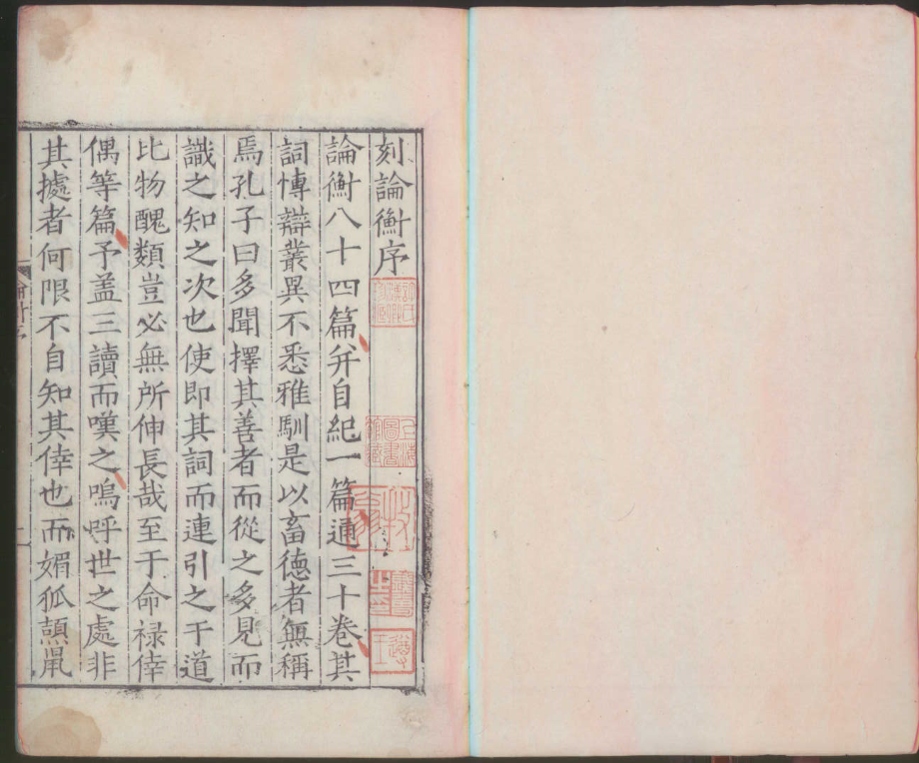 刻論衡序
論衡八十四篇并自紀一篇通三十卷其
詞愽辯叢異不悉雅馴是以畜德者無稱
焉孔子曰多聞擇其善者而從之多見而
識之知之次也使即其詞而連引之于道
比物醜類豈必無所伸長哉至于命禄倖
偶等篇予盖三讀而嘆之嗚呼世之處非
其據者何限不自知其倖也而媚狐